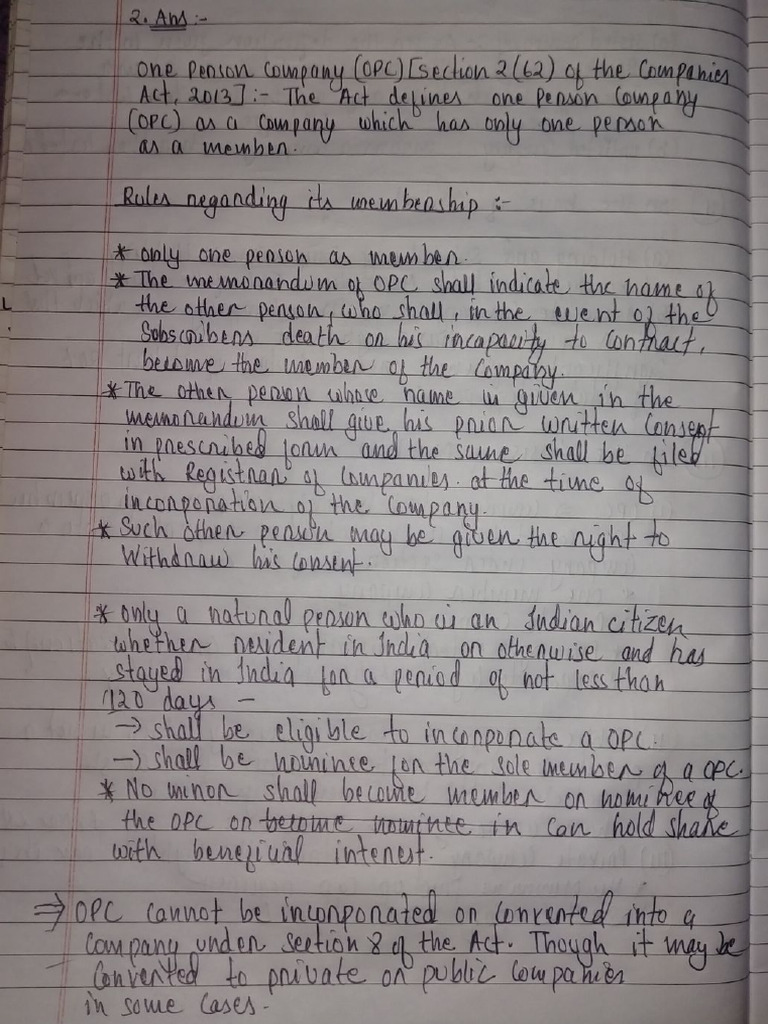 2. Ans :-
One Person Company (OPC) [Section 2(62) of the Companies
Act, 2013] :- The Act defines one Person Company
(OPC) as a Company which has only one person
as a member.
Rules regarding its membership :-
* only one person as member.
* The memorandum of OPC shall indicate the name of
the other person, who shall, in the event of the
Subscribers death or his incapacity to contract,
become the member of the Company.
* The other person whose name is given in the
memorandum shall give his prior written consent
in prescribed form and the same shall be filed
with Registrar of Companies at the time of
incorporation of the Company.
* Such other person may be given the right to
Withdraw his consent.
* only a natural person who is an Indian citizen
whether resident in India or otherwise and has
stayed in India for a period of not less than
120 days -
→ shall be eligible to incorporate a OPC.
→ shall be nominee for the sole member of a OPC.
* No minor shall become member or nominee of
the OPC or become nominee in can hold share
with beneficial interest.
⇒ OPC cannot be incorporated or converted into a
Company under section 8 of the Act. Though it may be
converted to private or public companies
in some cases.